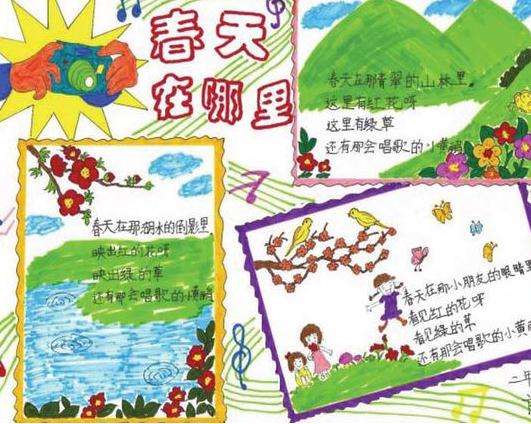 春天
在哪里
春天在那青翠的山林里。
这里有红花呀
这里有绿草
还有那会唱歌的小黄鹂
春天在那湖水的倒影里
映出红的花呀
映出绿的草
还有那会唱歌的小黄鹂
春天在那小朋友的眼睛里
看见红的花呀
看见绿的草
还有那会唱歌的小黄
二年